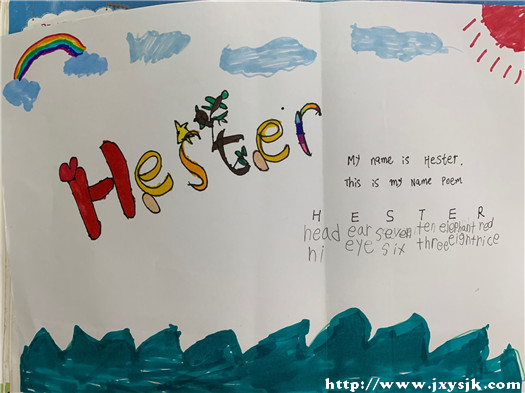 Hester
My name is Hester.
This is my Name Poem
H E S T E R
head ear seven ten elephant red
hi eye six three eight rice
http://www.jxysjk.com